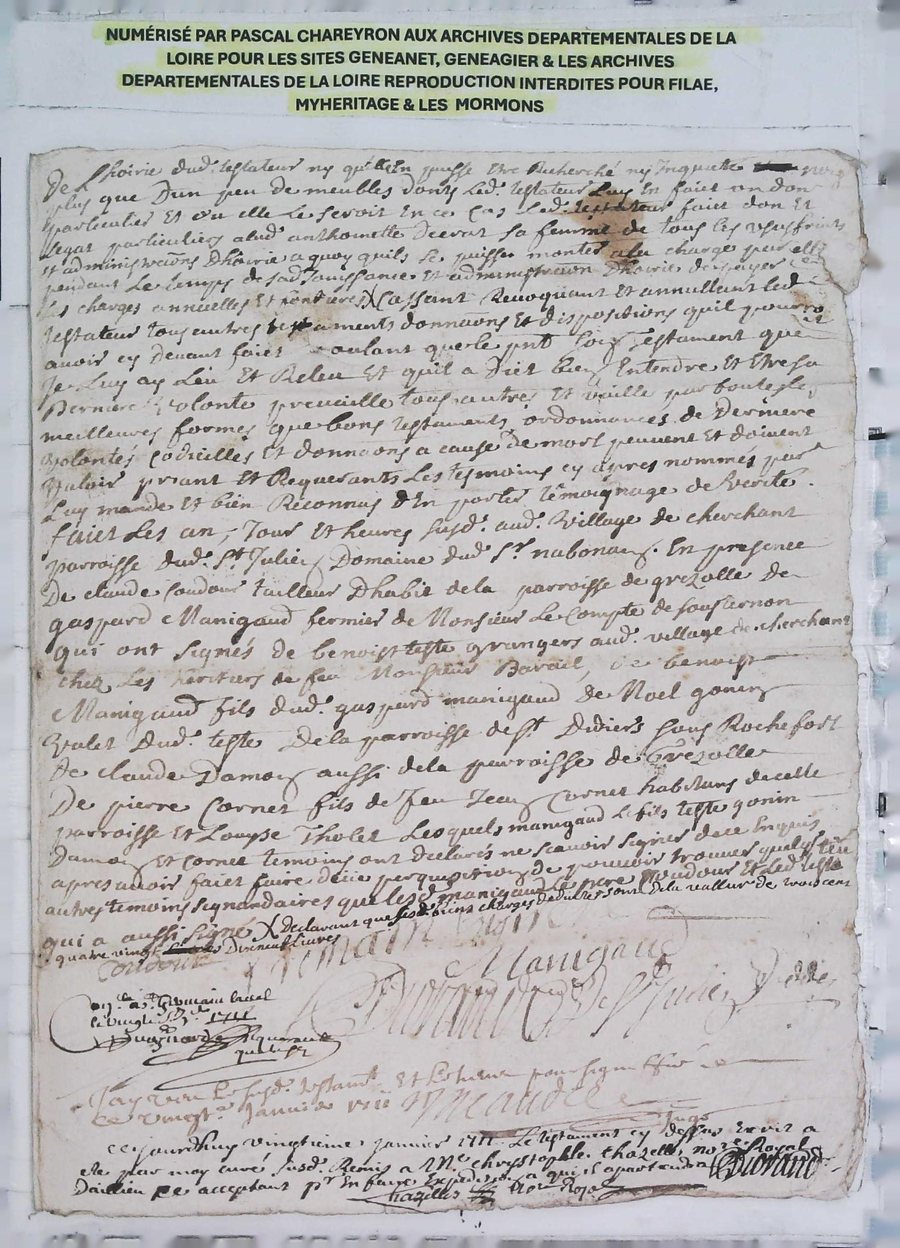 NUMÉRISÉ PAR PASCAL CHAREYRON AUX ARCHIVES DEPARTEMENTALES DE LA
LOIRE POUR LES SITES GENEANET, GENEAGIER & LES ARCHIVES
DEPARTEMENTALES DE LA LOIRE REPRODUCTION INTERDITES POUR FILAE,
MYHERITAGE & LES MORMONS
de Lhoirie dud. testateur ny quelle en puisse Etre Recherché ny Inquieté
plus que d'un peu de meubles donts Led. testateur Luy En faict un don
particulier Et ou elle Le seroit En ce cas Led. testateur faict don Et
legat particuliers alad. anthoinette sa femme de tous les usufruits
et administraōns Dhoirie a quoy quils se puisse monter ala charge par elle
pendant Le temps de sad. Jouissance Et administraōn Dhoirie de payer
les charges annuelles Et rentieres X Cassant Revoquant Et annullant led.
testateur tous autres testaments donnaōns Et dispositions quil pourroit
avoir cy devant faict voulant que le pnt soit testament que
Je Luy ay Leu Et Releu Et quil a dict bien Entendre Et Etre sa
Derniere volonté prevaille tous autres Et vaille par toutes les
meilleures formes que bons testaments, ordonnances de Derniere
volontés Codicilles Et donnaōns a cause de mort peuvent Et doivent
valoir priant Et Requerants Les tesmoins cy apres nommés par
Luy mandé Et bien Reconnus d'En porter témoignage de verité.
faict Les an, Jour Et heures susd. aud. village de cherchant
parroisse dud. St Julien Domaine dud. Sr . En presence
De claude Coudour tailleur Dhabit dela parroisse de grezolle de
gaspard Manigaud fermier de Monsieur Le Compte de Sousternon
qui ont signés de benoist teste grangers aud. village de cherchant
chez Les heritiers de feu Monsieur , de benoist
Manigaud fils dud. gaspard manigaud de Noel gonin
valet dud. teste Dela parroisse de St Didiers sous Rochefort
de claude Damon aussi dela parroisse de Grezolle
De pierre Cornet fils de feu Jean Cornet habitans de celle
parroisse Et Louyse tholet Lesquels manigaud le fils teste gonin
Damon Et Cornet temoins ont declarés ne scavoir signer de ce Enquis
apres avoir faict faire deüe perquisition de pouvoir trouver quelques
autres temoins signandaires que lesd. manigaud le pere Coudour Et led. teste
qui a aussi signé X declarant que lesd. biens charges deduites sont dela valleur de trois cent
quatre vingt Dixneuf livres
Coudour
Manigaud
Durand Curé de St Julien
à St Germain laval
le vingt 1711
J'ay veu le susd. testamt Et
ce vingte Janvier 1711
ce Jourdhuy vingtieme Janvier 1711 Le testament cy dessus Escrit a
été par moy curé susd. Remis a Me Chrystophle Chazelles no.re Royal
Daillieu ce acceptant pr En faire Expedition a qui il apartiendra Durand
Chazelles No.re Royal